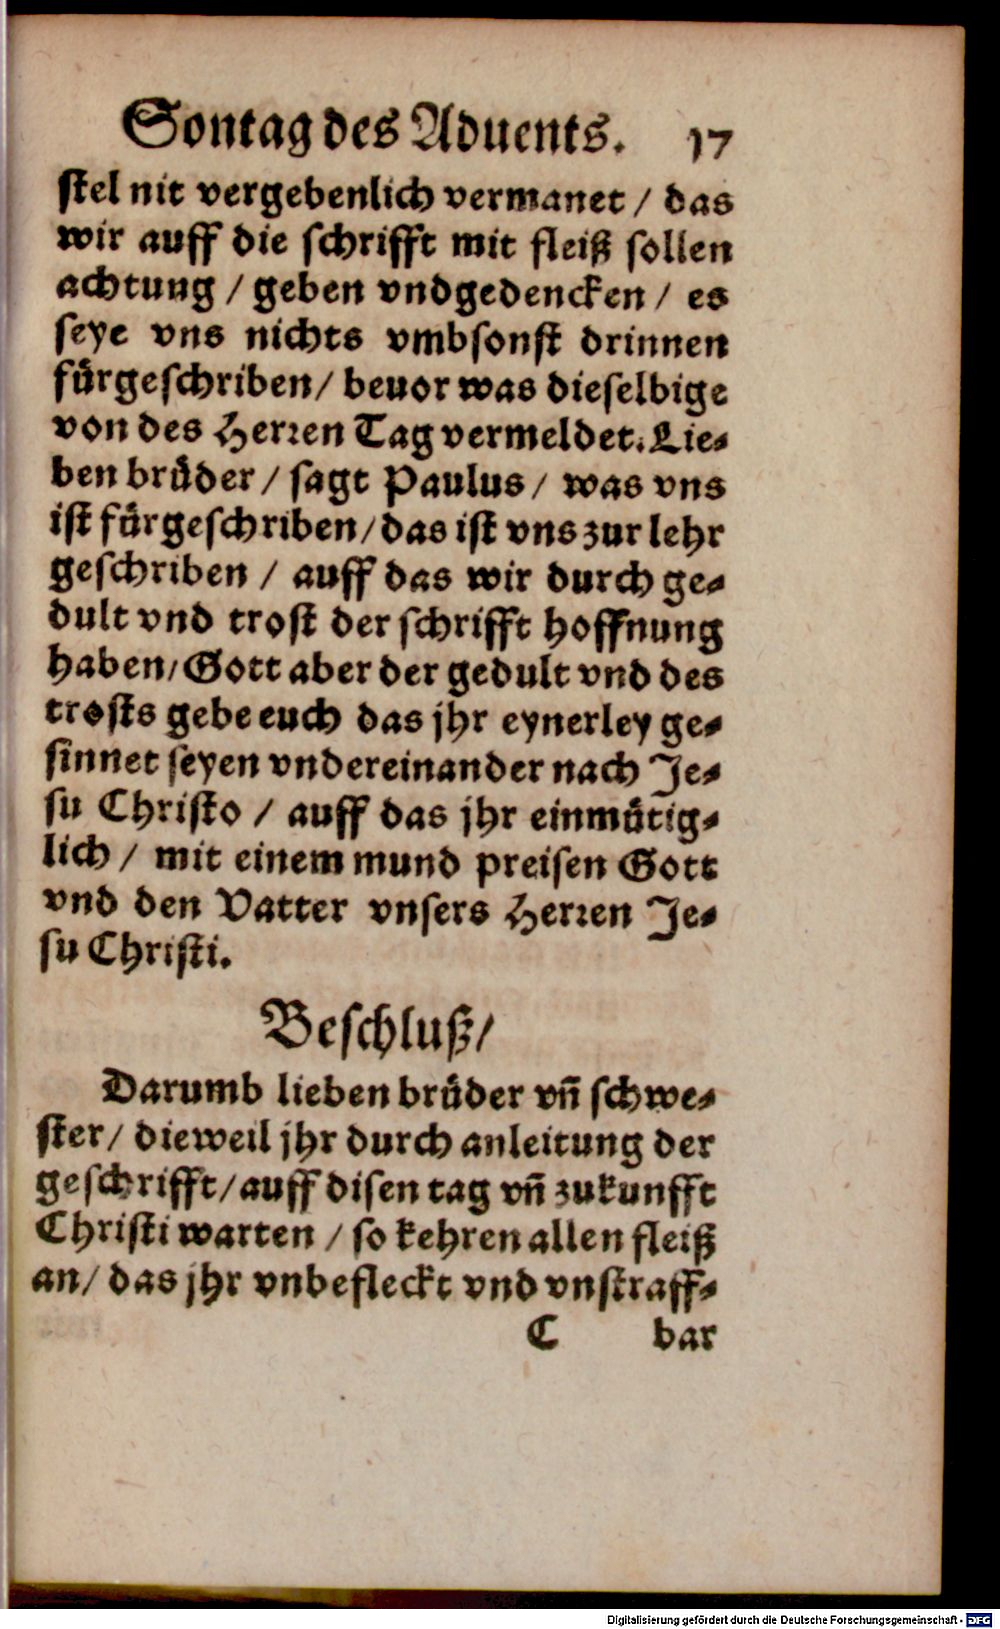 Sontag des Aduents. 17
stel nit vergebenlich vermanet / das
wir auff die schrifft mit fleiß sollen
achtung / geben vndgedencken / es
seye vns nichts vmbsonst drinnen
fürgeschriben / beuor was dieselbige
von des Herren Tag vermeldet. Lie⸗
ben brüder / sagt Paulus / was vns
ist fürgeschriben / das ist vns zur lehr
geschriben / auff das wir durch ge⸗
dult vnd trost der schrifft hoffnung
haben / Gott aber der gedult vnd des
trosts gebe euch das jhr eynerley ge⸗
sinnet seyen vndereinander nach Je⸗
su Christo / auff das jhr einmütig⸗
lich / mit einem mund preisen Gott
vnd den Vatter vnsers Herren Je⸗
su Christi.
Beschluß /
Darumb lieben brüder vñ schwe⸗
ster / dieweil jhr durch anleitung der
geschrifft / auff disen tag vñ zukunfft
Christi warten / so kehren allen fleiß
an / das jhr vnbefleckt vnd vnstraff⸗
C bar
Digitalisierung gefördert durch die Deutsche Forschungsgemeinschaft - DFG